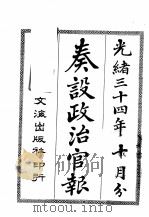 光緒三十四年十月分
奏設政治官報
文海出版社印行